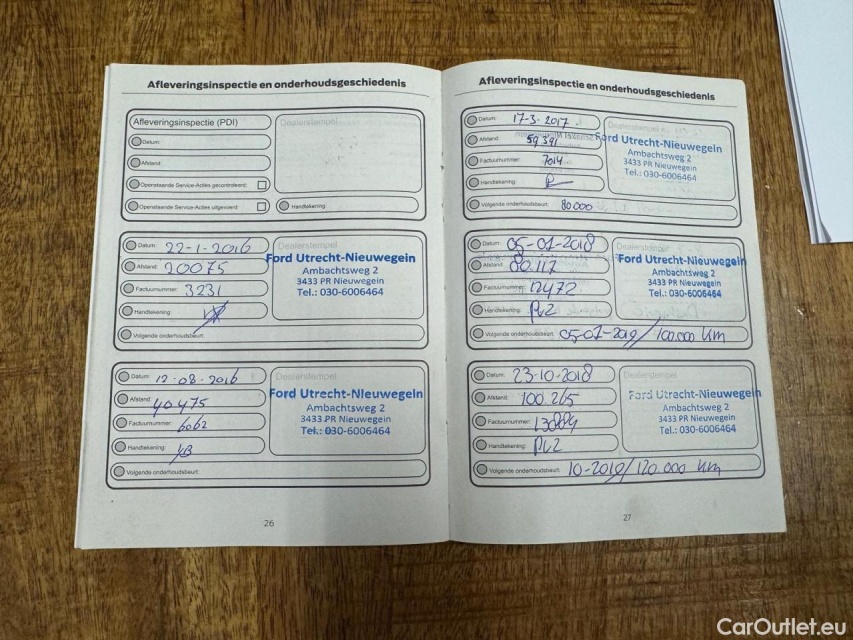 Afleveringsinspectie en onderhoudsgeschiedenis
Afleveringsinspectie (PDI)
Dealerstempel
Datum:
Afstand:
Openstaande Service-Acties gecontroleerd:
Openstaande Service-Acties uitgevoerd:
Handtekening:
Datum: 22-1-2016
Dealerstempel
Afstand: 20075
Factuurnummer: 3231
Handtekening:
Volgende onderhoudsbeurt:
Ford Utrecht-Nieuwegein
Ambachtsweg 2
3433 PR Nieuwegein
Tel.: 030-6006464
Datum: 12-08-2016
Dealerstempel
Afstand: 40475
Factuurnummer: 6062
Handtekening:
Volgende onderhoudsbeurt:
Ford Utrecht-Nieuwegein
Ambachtsweg 2
3433 PR Nieuwegein
Tel.: 030-6006464
26
Afleveringsinspectie en onderhoudsgeschiedenis
Datum: 17-3-2017
Dealerstempel
Afstand: 59391
Factuurnummer: 7014
Handtekening:
Volgende onderhoudsbeurt: 80000
Ford Utrecht-Nieuwegein
Ambachtsweg 2
3433 PR Nieuwegein
Tel.: 030-6006464
Datum: 05-01-2018
Dealerstempel
Afstand: 80.117
Factuurnummer: 12472
Handtekening:
Volgende onderhoudsbeurt: 05-01-2019/100.000 km
Ford Utrecht-Nieuwegein
Ambachtsweg 2
3433 PR Nieuwegein
Tel.: 030-6006464
Datum: 23-10-2018
Dealerstempel
Afstand: 100.265
Factuurnummer:
Handtekening:
Volgende onderhoudsbeurt: 10-2019/120.000 km
Ford Utrecht-Nieuwegein
Ambachtsweg 2
3433 PR Nieuwegein
Tel.: 030-6006464
27
CarOutlet.eu